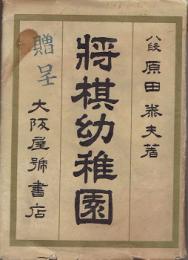 八段 原田泰夫著
將棋幼稚園
贈呈
大阪屋號書店